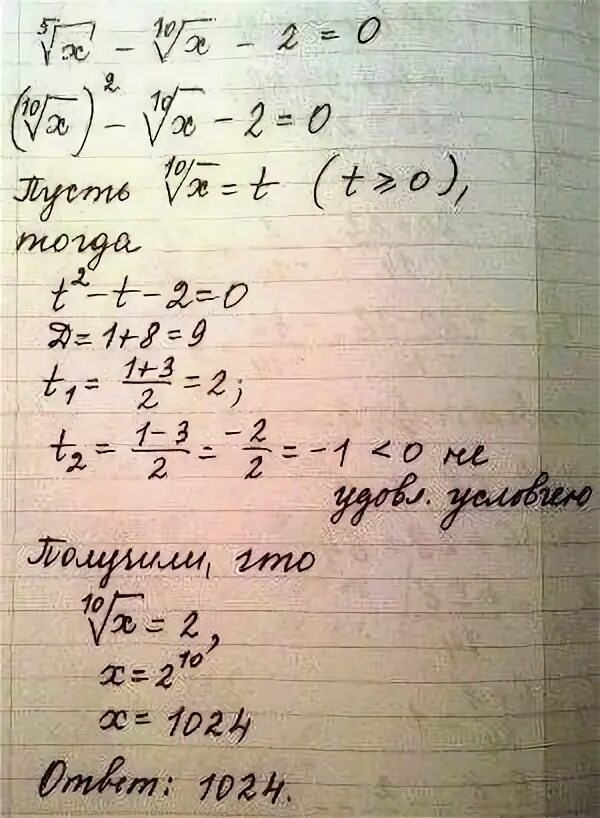 ⁵√x - ¹⁰√x - 2 = 0
(¹⁰√x)² - ¹⁰√x - 2 = 0
Пусть ¹⁰√x = t (t ⩾ 0),
тогда
t² - t - 2 = 0
Д = 1+8 = 9
t₁ = (1+3)/2 = 2;
t₂ = (1-3)/2 = -2/2 = -1 < 0 не
удовл. условию
Получили, что
¹⁰√x = 2,
x = 2¹⁰,
x = 1024
Ответ: 1024.